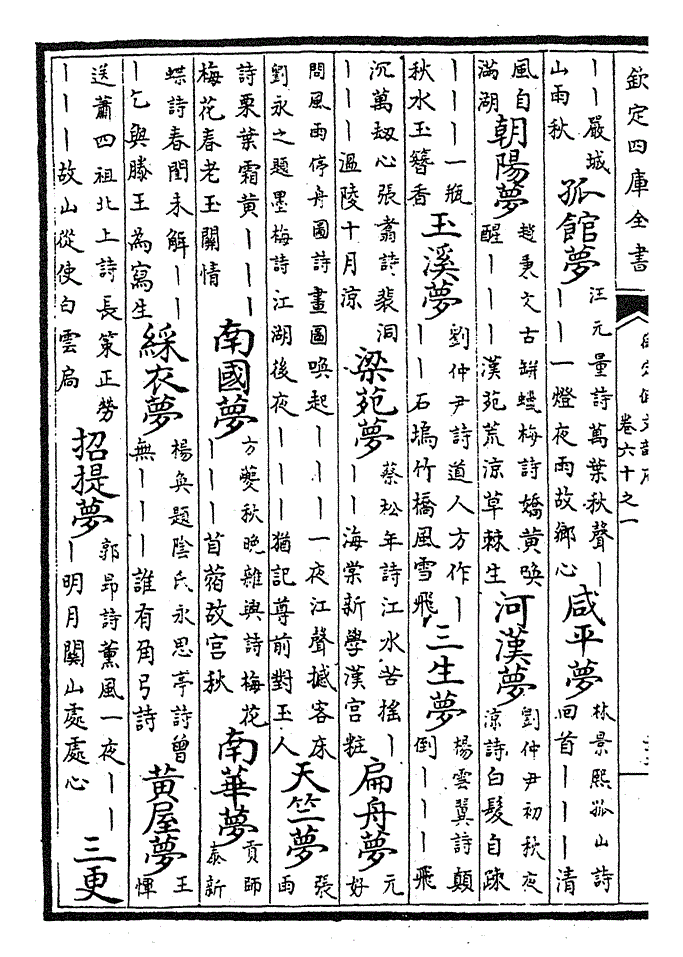 欽定四庫全書
卷六十之一
丨丨嚴城
山雨秋
孤館夢
汪元量詩萬葉秋聲丨
丨丨一燈夜雨故鄉心
咸平夢
林景熙孤山詩
回首丨丨丨清
風自
滿湖
朝陽夢
趙秉文古缾蠟梅詩嬌黃喚
醒丨丨丨漢苑荒涼草棘生
河漢夢
劉仲尹初秋夜
涼詩白髮自疎
丨丨丨一瓶
秋水玉簪香
玉溪夢
劉仲尹詩道人方作丨
丨丨石塢竹橋風雪飛
三生夢
楊雲翼詩顛
倒丨丨丨飛
沉萬劫心張翥詩裴洞
丨丨丨溫陵十月涼
梁苑夢
蔡松年詩江水苦搖丨
丨丨海棠新學漢宮粧
扁舟夢
元
好
問風雨停舟圖詩畫圖喚起丨丨丨一夜江聲撼客床
劉永之題墨梅詩江湖後夜丨丨丨猶記尊前對玉人
天竺夢
張
雨
詩栗葉霜黃丨丨丨
梅花春老玉關情
南國夢
方夔秋晚雜興詩梅花
丨丨丨苜蓿故宮秋
南華夢
貢師
泰新
蝶詩春閨未解丨丨
丨乞與滕王為寫生
綵衣夢
楊奐題陰氏永思亭詩曾
無丨丨丨誰有角弓詩
黃屋夢
王
惲
送蕭四祖北上詩長策正勞
丨丨丨故山從使白雲扃
招提夢
郭昂詩薰風一夜丨丨
丨明月關山處處心
三更